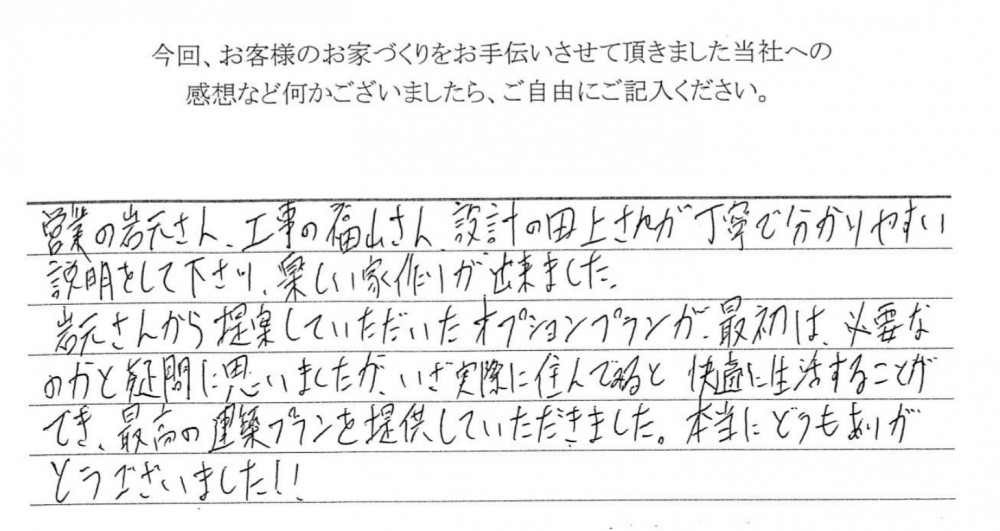 今回、お客様のお家づくりをお手伝いさせて頂きました当社への
感想など何かございましたら、ご自由にご記入ください。
営業の岩元さん、工事の福山さん、設計の田上さんが丁寧で分かりやすい
説明をして下さり、楽しい家作りが出来ました。
岩元さんから提案していただいたオプションプランが、最初は、必要な
のかと疑問に思いましたが、いざ実際に住んでみると 快適に生活することが
でき、最高の建築プランを提供していただきました。本当にどうもありが
とうございました!!